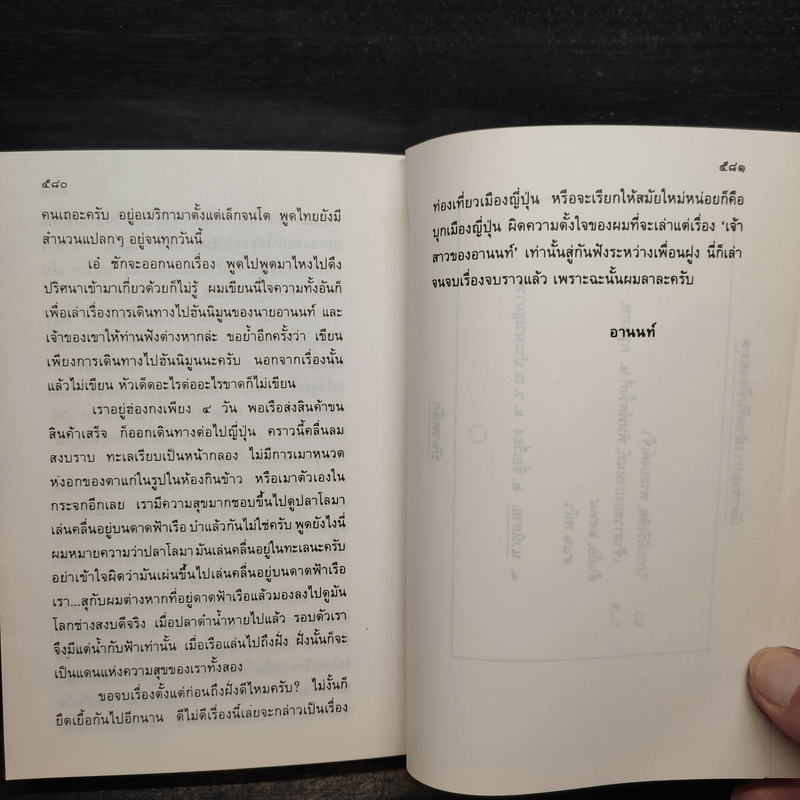 ๕๘๐
คนเถอะครับ อยู่อเมริกามาตั้งแต่เล็กจนโต พูดไทยยังมี
สำนวนแปลกๆ อยู่จนทุกวันนี้
เอ๋ ชักจะออกนอกเรื่อง พูดไปพูดมาไหงไปดึง
ปริศนาเข้ามาเกี่ยวด้วยก็ไม่รู้ ผมเขียนนี่ใจความทั้งอันก็
เพื่อเล่าเรื่องการเดินทางไปฮันนิมูนของนายอานนท์ และ
เจ้าของเขาให้ท่านฟังต่างหากล่ะ ขอย้ำอีกครั้งว่า เขียน
เพียงการเดินทางไปฮันนิมูนนะครับ นอกจากเรื่องนั้น
แล้วไม่เขียน หัวเด็ดอะไรต่ออะไรขาดก็ไม่เขียน
เราอยู่ฮ่องกงเพียง ๔ วัน พอเรือส่งสินค้าขน
สินค้าเสร็จ ก็ออกเดินทางต่อไปญี่ปุ่น คราวนี้คลื่นลม
สงบราบ ทะเลเรียบเป็นหน้ากลอง ไม่มีการเมาหนวด
หงอกของตาแก่ในรูปในห้องกินข้าว หรือเมาตัวเองใน
กระจกอีกเลย เรามีความสุขมากชอบขึ้นไปดูปลาโลมา
เล่นคลื่นอยู่บนดาดฟ้าเรือ บ๋าแล้วกันไม่ใช่ครับ พูดยังไงนี่
ผมหมายความว่าปลาโลมา มันเล่นคลื่นอยู่ในทะเลนะครับ
อย่าเข้าใจผิดว่ามันเผ่นขึ้นไปเล่นคลื่นอยู่บนดาดฟ้าเรือ
เรา...สุกับผมต่างหากที่อยู่ดาดฟ้าเรือแล้วมองลงไปดูมัน
โลกช่างสงบดีจริง เมื่อปลาดำน้ำหายไปแล้ว รอบตัวเรา
จึงมีแต่น้ำกับฟ้าเท่านั้น เมื่อเรือแล่นไปถึงฝั่ง ฝั่งนั้นก็จะ
เป็นแดนแห่งความสุขของเราทั้งสอง
ขอจบเรื่องตั้งแต่ก่อนถึงฝั่งดีไหมครับ? ไม่งั้นก็
ยืดเยื้อกันไปอีกนาน ดีไม่ดีเรื่องนี้เลยจะกล่าวเป็นเรื่อง
๕๘๑
ท่องเที่ยวเมืองญี่ปุ่น หรือจะเรียกให้สมัยใหม่หน่อยก็คือ
บุกเมืองญี่ปุ่น ผิดความตั้งใจของผมที่จะเล่าแต่เรื่อง 'เจ้า
สาวของอานนท์' เท่านั้นสู่กันฟังระหว่างเพื่อนฝูง นี่ก็เล่า
จนจบเรื่องจบราวแล้ว เพราะฉะนั้นผมลาล่ะครับ
อานนท์